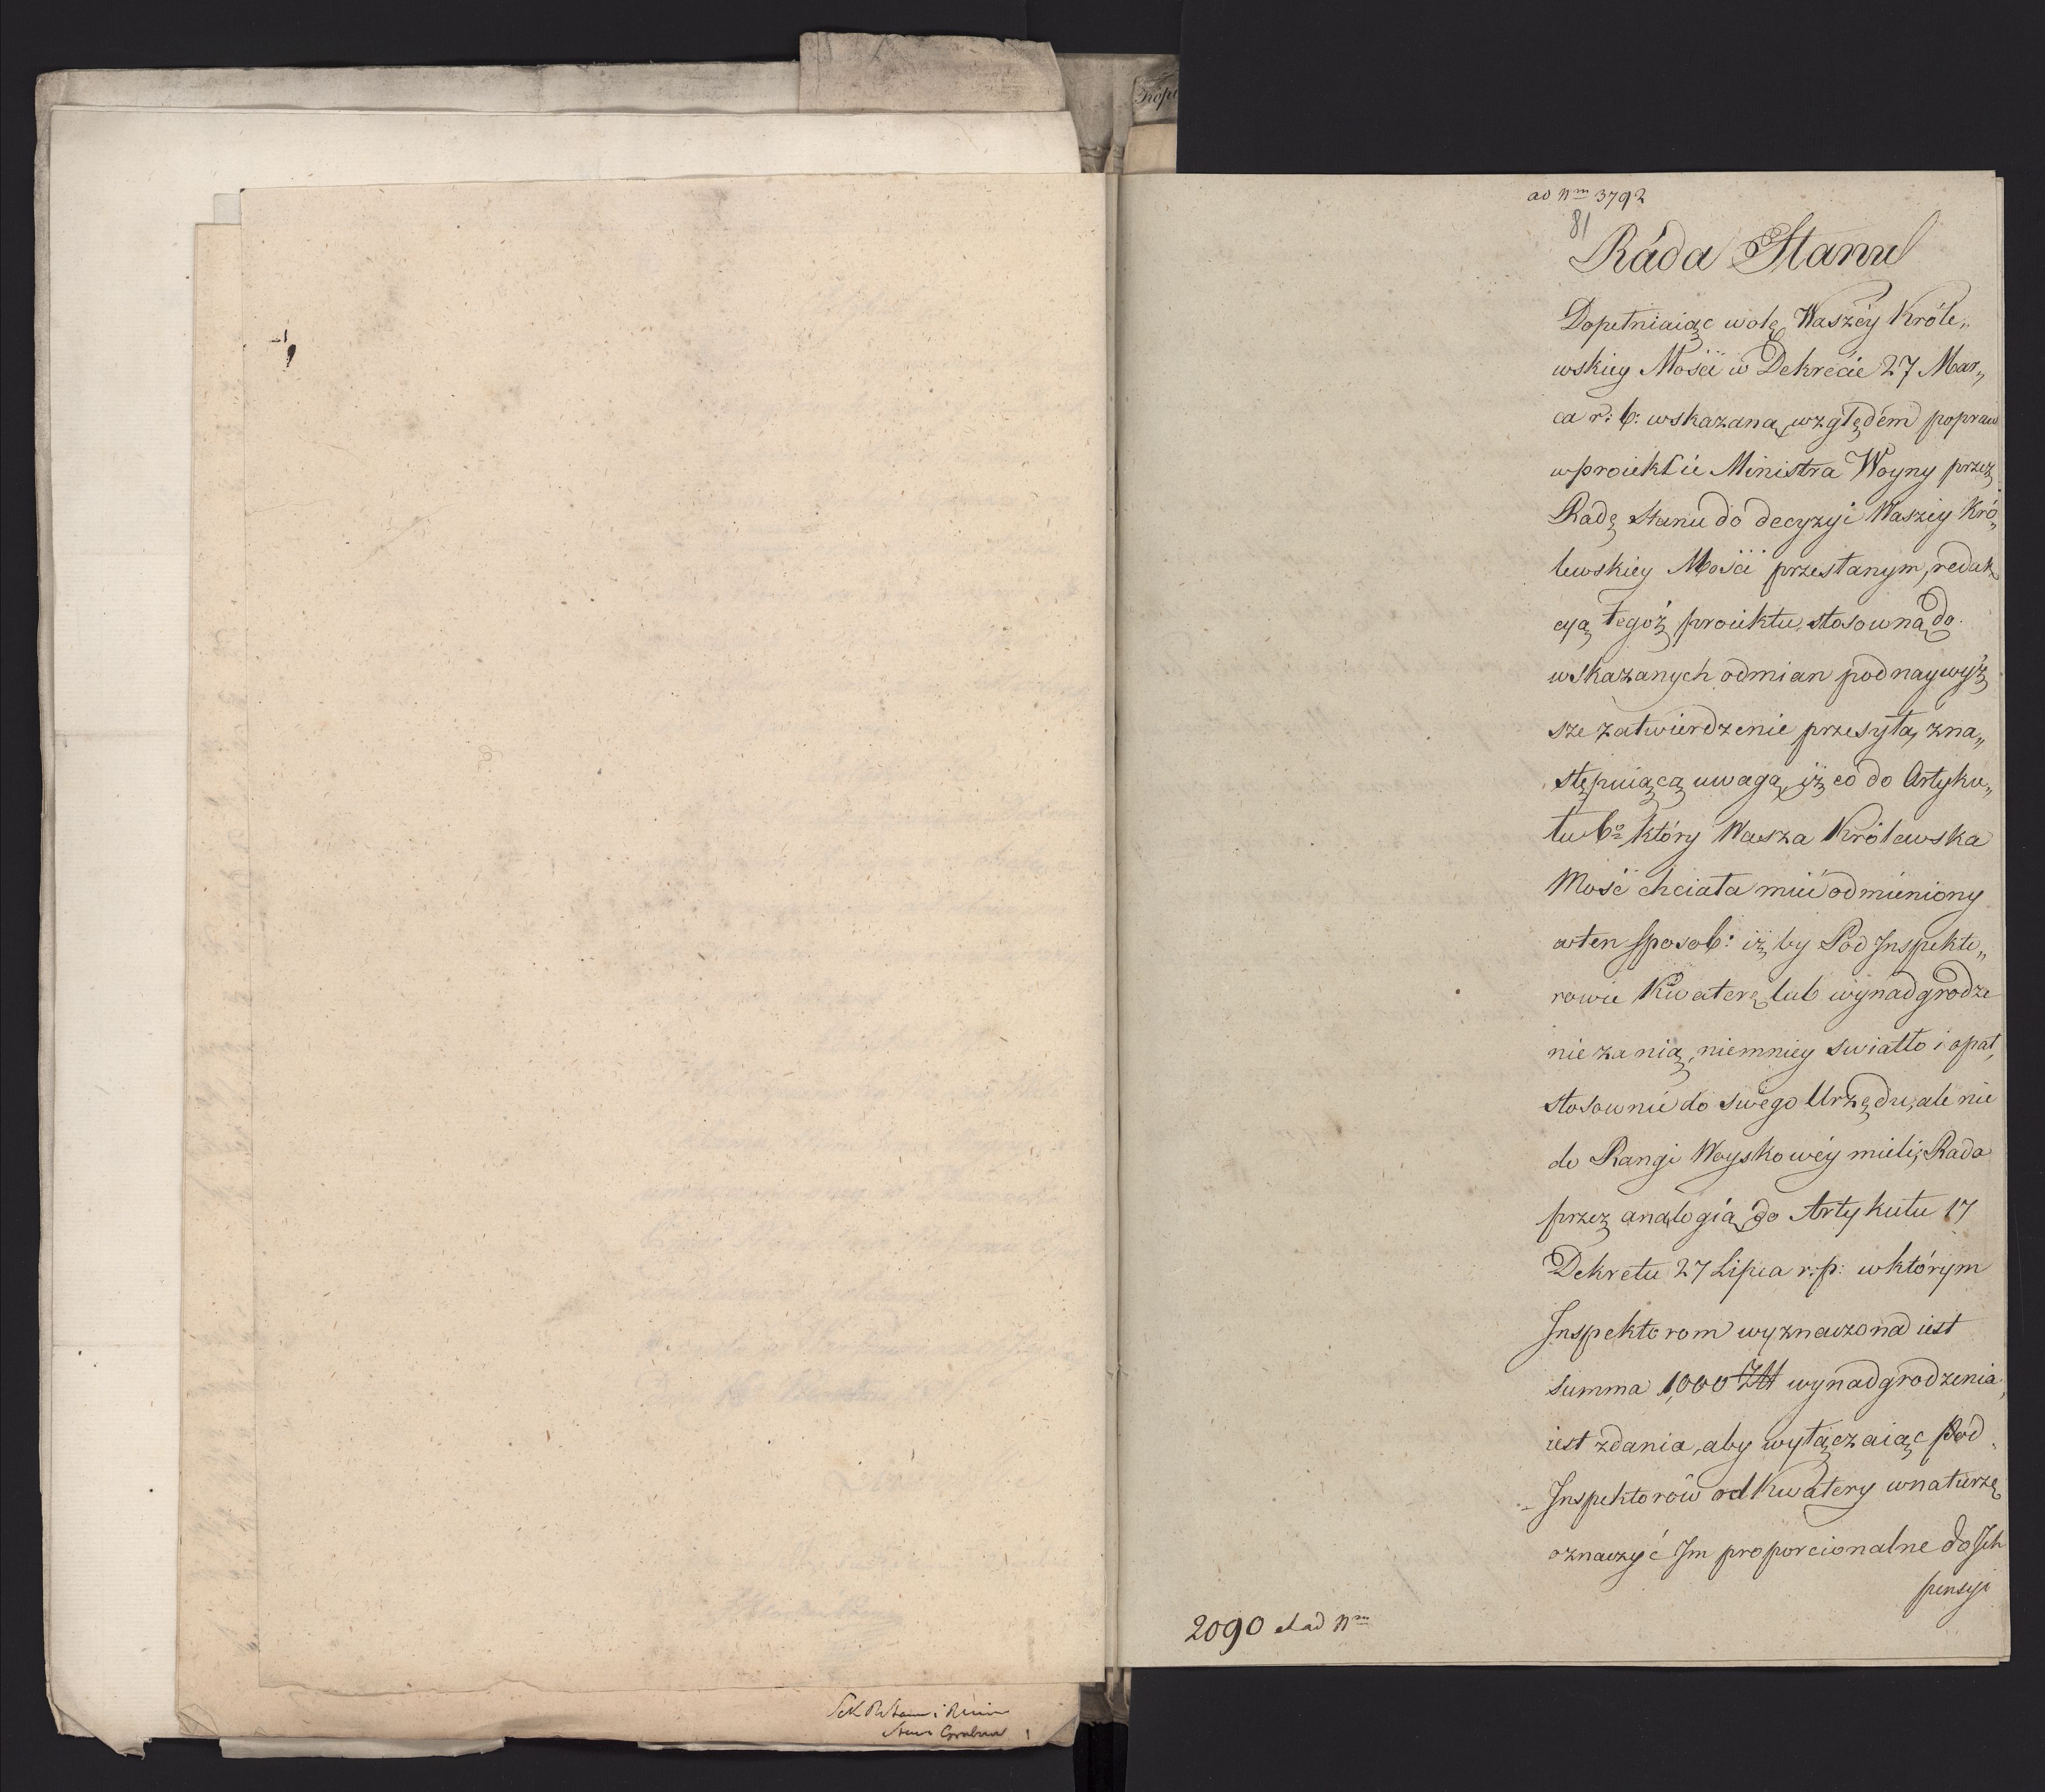 ad Nm 3792
81
Rada Stanu
Dopełniaiąc wolę Waszéy Króle„
wskiey Mości w Dekrécie 27 Mar„
ca r: b: wskazaną względem popraw
w proiekcie Ministra Woyny przez
Radę Stanu do decyzyi Waszey Kró„
lewskiey Mości przesłanym, redak„
cyą tegóż proiektu, stosowną do
wskazanych odmian pod naywyż„
sze zatwierdzenie przesyła, z na„
stępuiącą uwagą, iż co do Artyku„
łu 6o który Wasza Królewska
Mość chciała mieć odmieniony
w ten sposob: iż by Pod Inspekto„
rowie Kwaterę lub wynadgrodze
nie za nią, niemniey swiatło i opał,
stosownie do swego Urzędu, ale nie
do Rangi Woyskowéy mieli; Rada
przez analogią do Artykułu 17
Dekretu 27 Lipca r: p: w którym
Inspektorom wyznaczona iest
summa 1,000 Złł wynadgrodzenia,
iest zdania, aby wyłączaiąc Pod
Inspektorów od Kwatery w naturze,
oznaczyć Im proporcionalne do Ich
pensyi
2090 et ad Nm